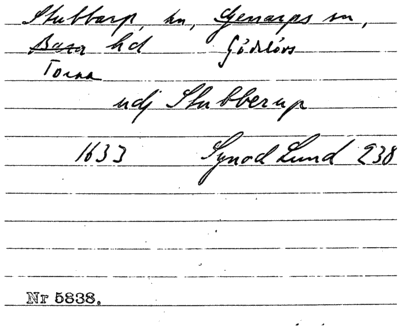 Stubbarp, hn, Genarps sn,
Bara hd Gödelövs
Torna
udj Stubberup
1633 Synod Lund 238
Nr 5838.